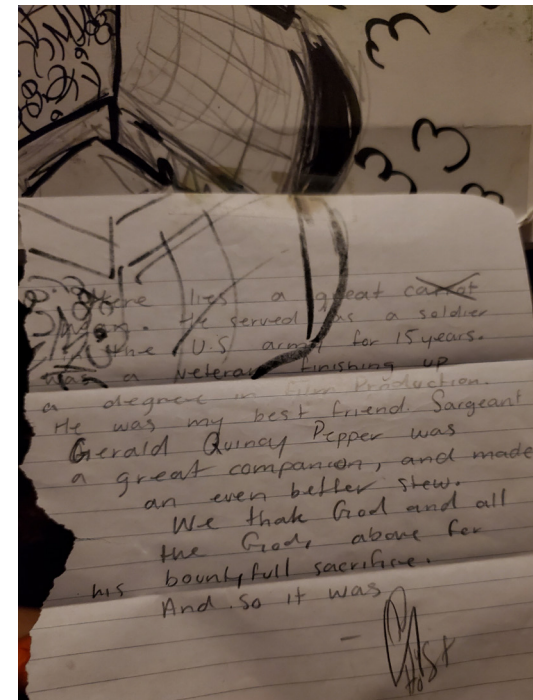 Here lies a great carrot
He served as a soldier
the U.S army for 15 years.
was a veteran finishing up
a degree in Film Production.
He was my best friend. Sargeant
Gerald Quincy Pepper was
a great companion, and made
an even better stew.
We thak God and all
the Gods above for
his bountyfull sacrifice.
And so it was